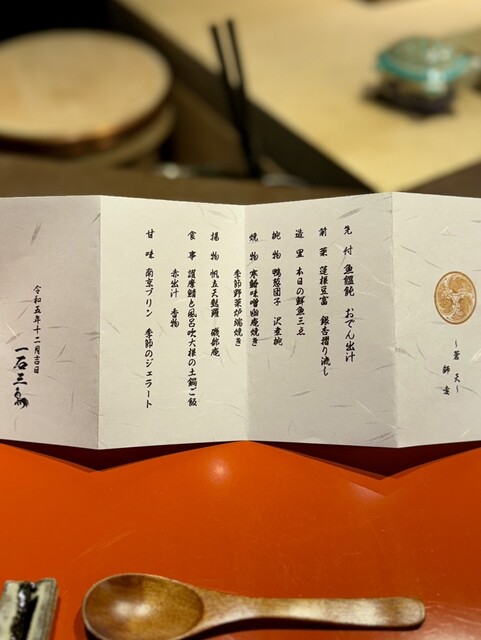 ～蒼天～
師走
先付 魚饂飩 おでん出汁
前菜 蓮根豆富 銀杏摺り流し
造里 本日の鮮魚三点
椀物 鴨葱団子 沢煮椀
焼物 寒鰆味噌幽庵焼き
季節野菜炉端焼き
揚物 帆立天麩羅 磯部庵
食事 護摩鯖と風呂吹大根の土鍋ご飯
赤出汁 香物
甘味 南京プリン 季節のジェラート
令和五年十二月吉日
一石三鳥